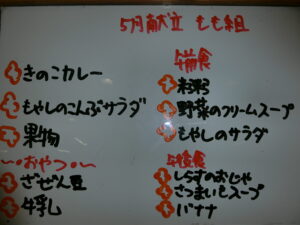 5月献立 もも組
きのこカレー
もやしのこんぶサラダ
果物
〜・おやつ・〜
ざぜん豆
牛乳
午前食
粥
野菜のクリームスープ
もやしのサラダ
午後食
しらすのおじや
さつまいもスープ
バナナ